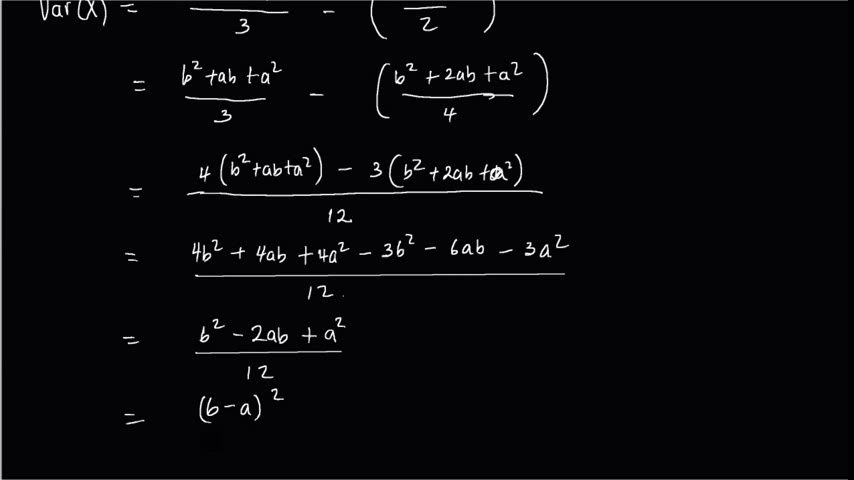 Var(X) = / 3 - ( / 2 )
= b² + ab + a² / 3 - ( b² + 2ab + a² / 4 )
= 4(b² + ab + a²) - 3(b² + 2ab + a²) / 12
= 4b² + 4ab + 4a² - 3b² - 6ab - 3a² / 12.
= b² - 2ab + a² / 12
= (b - a)²